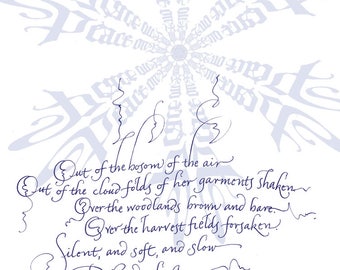 Peace on
Out of the bosom of the air
Out of the cloud folds of her garments shaken
Over the woodlands brown and bare
Over the harvest fields forsaken
Silent, and soft, and slow